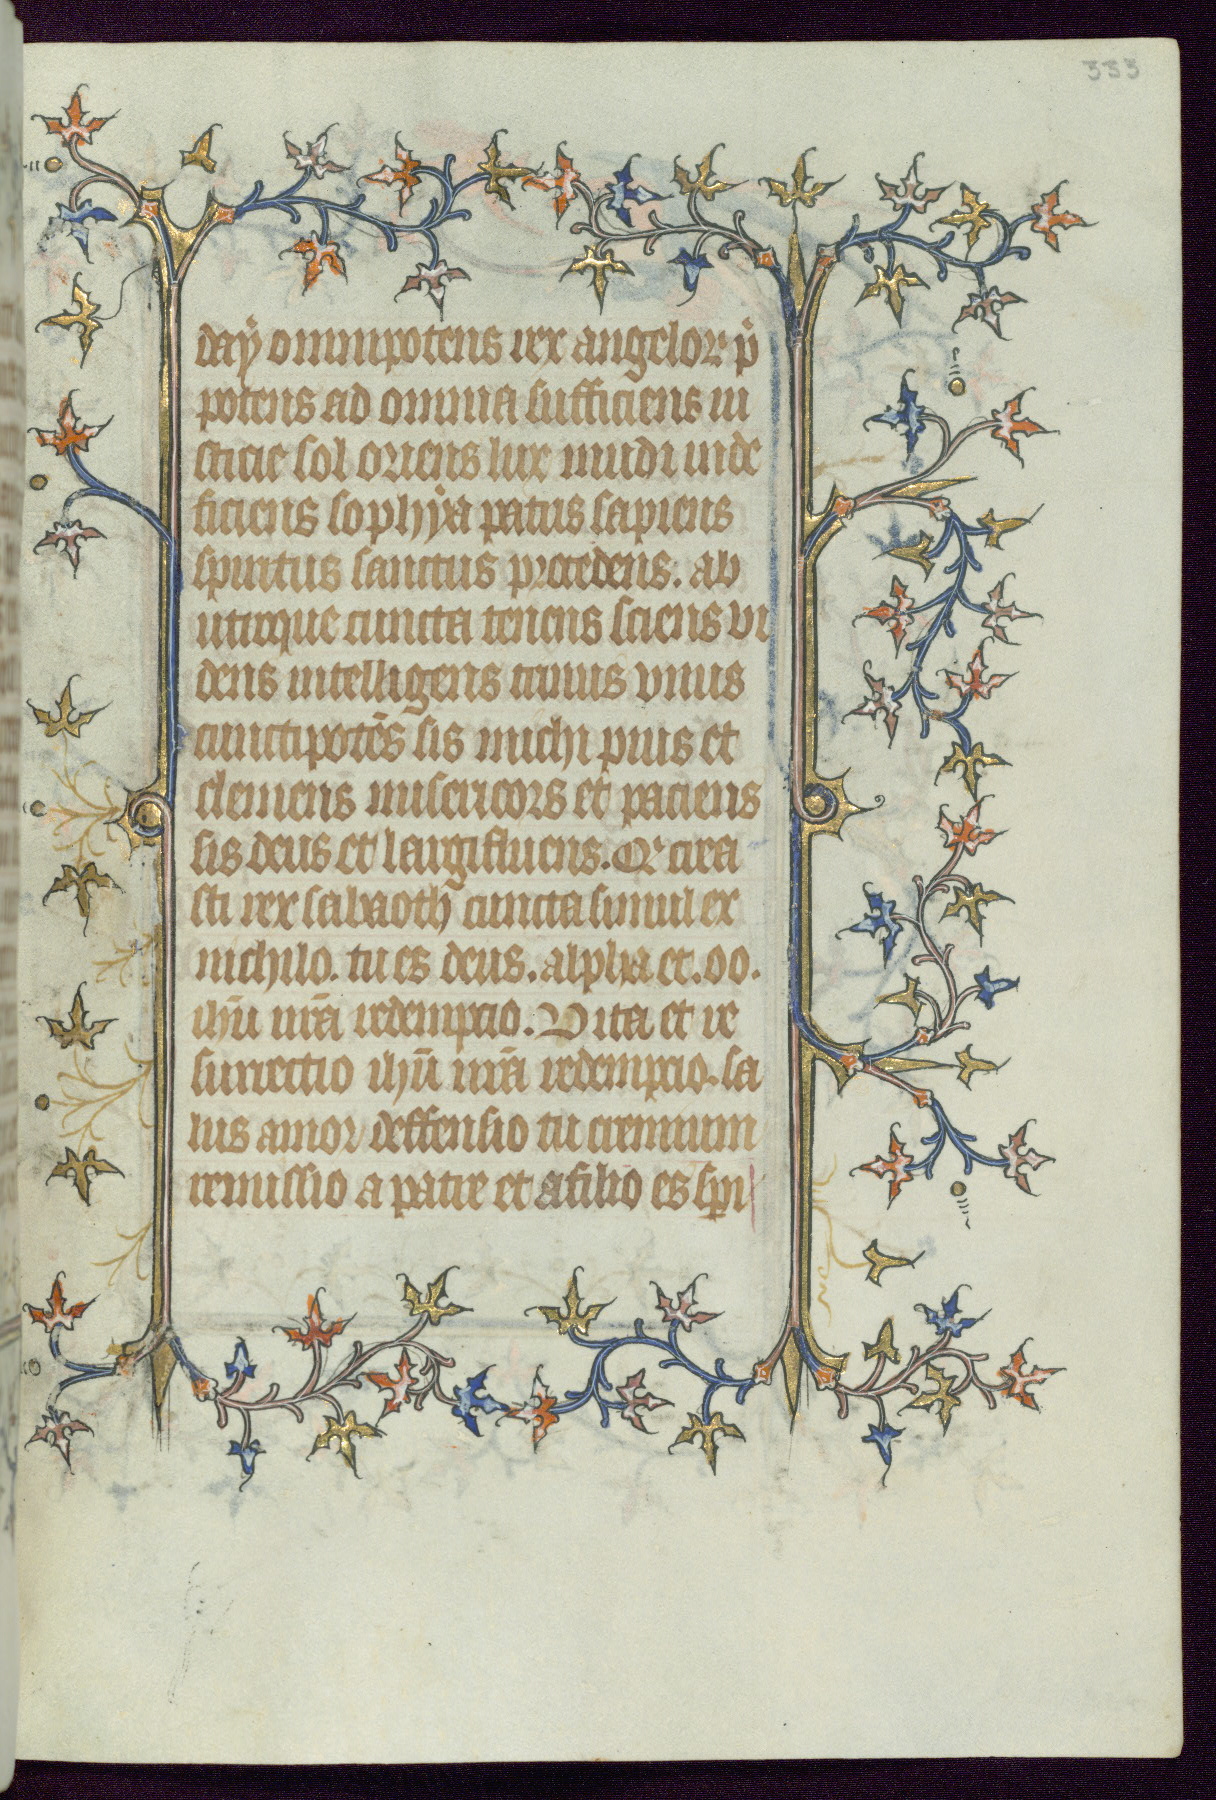 333
day omnipotens rex angelor p̄
potens ad omnia sufficiens iu
sticie sol oriens lux mundi inde
ficiens sophÿa patris sapiens
spiritus sanctus procedens. ab
utroque cuncta tenens sciens vi
dens intelligens trinus vnius
cunctipotēs sis michi pius et
clemens misericors et paciens
sis deus et largifluens. Or crea
sti rex sabaoth cuncta simul ex
nichilo. tu es deus. alpha et. oo.
ihū nrā redempcio. Vita et re
surrectio ihū nrā redempcio. sa
lus amor deffensio tu criminum
remissio a patre et a filio es spi